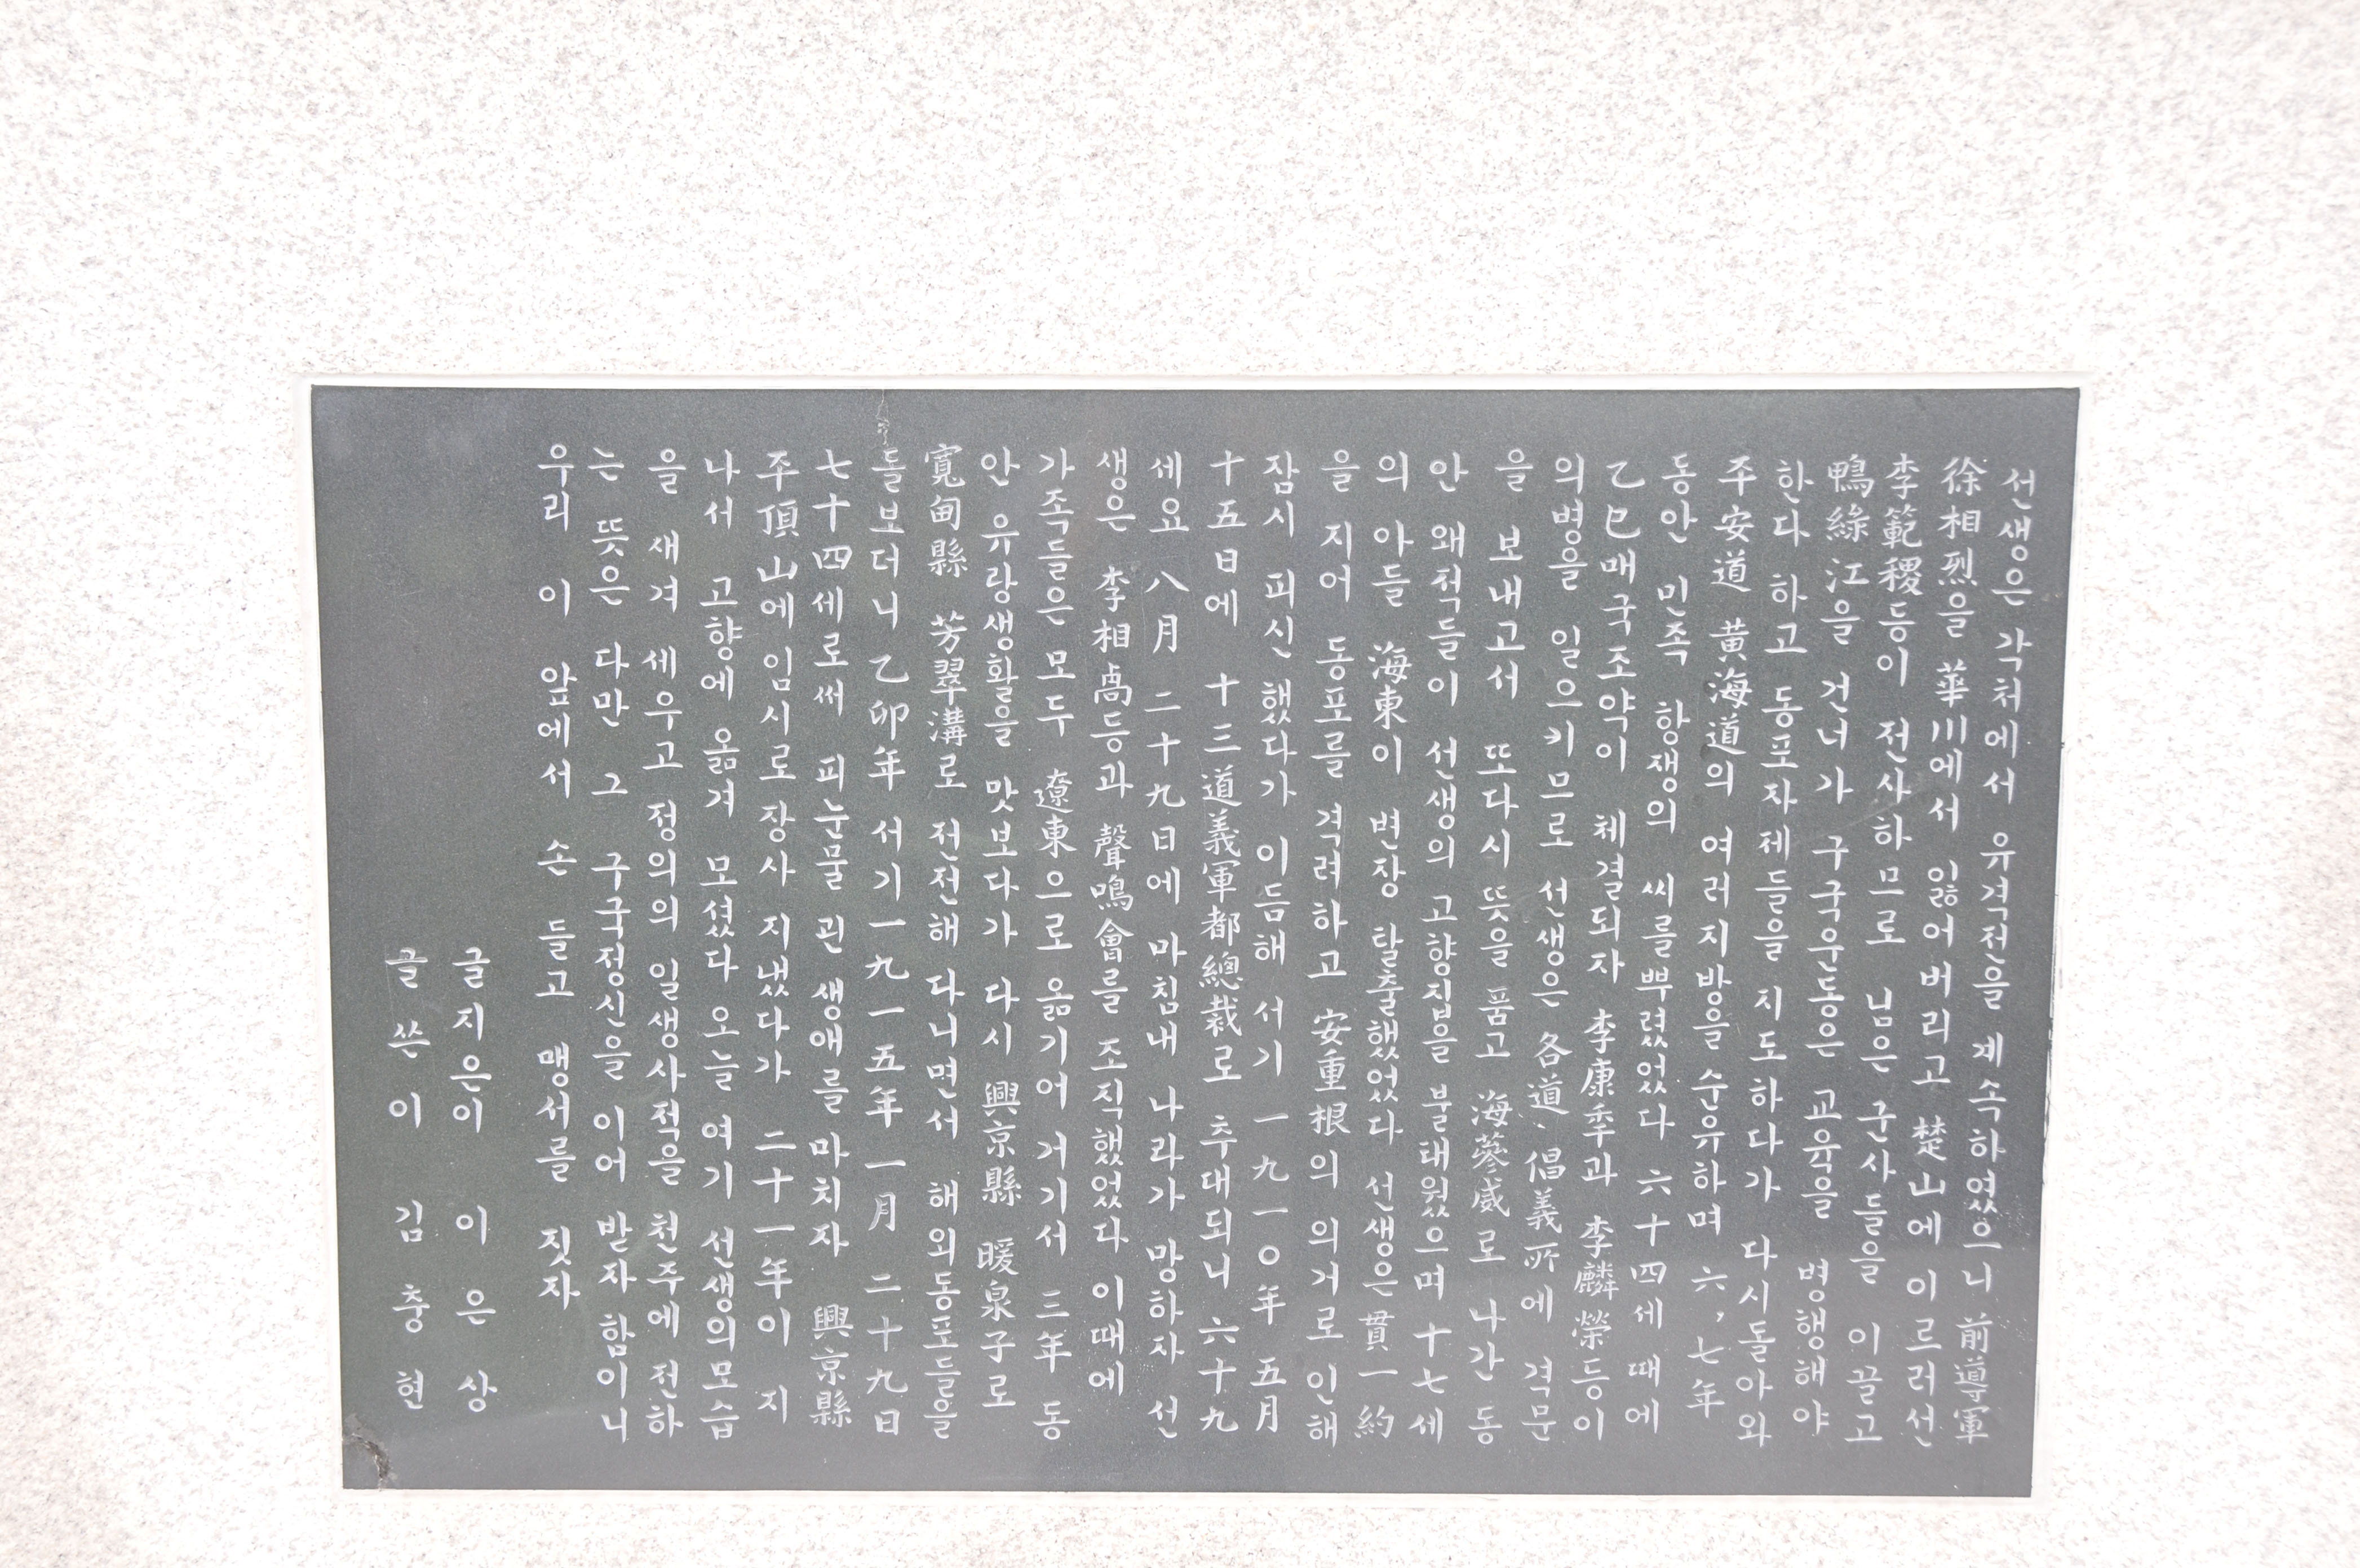 선생은 각처에서 유격전을 계속하였으니 前導軍
徐相烈을 華川에서 잃어버리고 楚山에 이르러선
李範稷등이 전사하므로 님은 군사들을 이끌고
鴨綠江을 건너가 구국운동은 교육을 병행해야
한다 하고 동포자제들을 지도하다가 다시돌아와
주安道 黃海道의 여러지방을 순유하며 六,七年
동안 민족 항쟁의 씨를뿌렸었다 六十四세 때에
乙巳매국조약이 체결되자 李康秊과 李麟榮등이
의병을 일으키므로 선생은 各道、倡義所에 격문
을 보내고서 또다시 뜻을 품고 海蔘威로 나간 동
안 왜적들이 선생의 고향집을 불태웠으며 十七세
의 아들 海東이 변장 탈출했었다 선생은 貫一約
을 지어 동포를 격려하고 安重根의 의거로 인해
잠시 피신 했다가 이듬해 서기 一九一○年 五月
十五日에 十三道義軍都總裁로 추대되니 六十九
세요 八月 二十九日에 마침내 나라가 망하자 선
생은 李相卨등과 聲鳴會를 조직했었다 이때에
가족들은 모두 遼東으로 옮기어 거기서 三年 동
안 유랑생활을 맛보다가 다시 興京縣 暖泉子로
寬甸縣 芳翠溝로 전전해 다니면서 해외동포들을
돌보더니 乙卯年 서기一九一五年一月 二十九日
七十四세로써 피눈물 괸 생애를 마치자 興京縣
平頂山에 임시로 장사 지냈다가 二十一年이 지
나서 고향에 옮겨 모셨다 오늘 여기 선생의모습
을 새겨 세우고 정의의 일생사적을 천주에 전하
는 뜻은 다만 그 구국정신을 이어 받자 함이니
우리 이 앞에서 손 들고 맹서를 짓자
글지은이 이은상
글쓴이 김충현